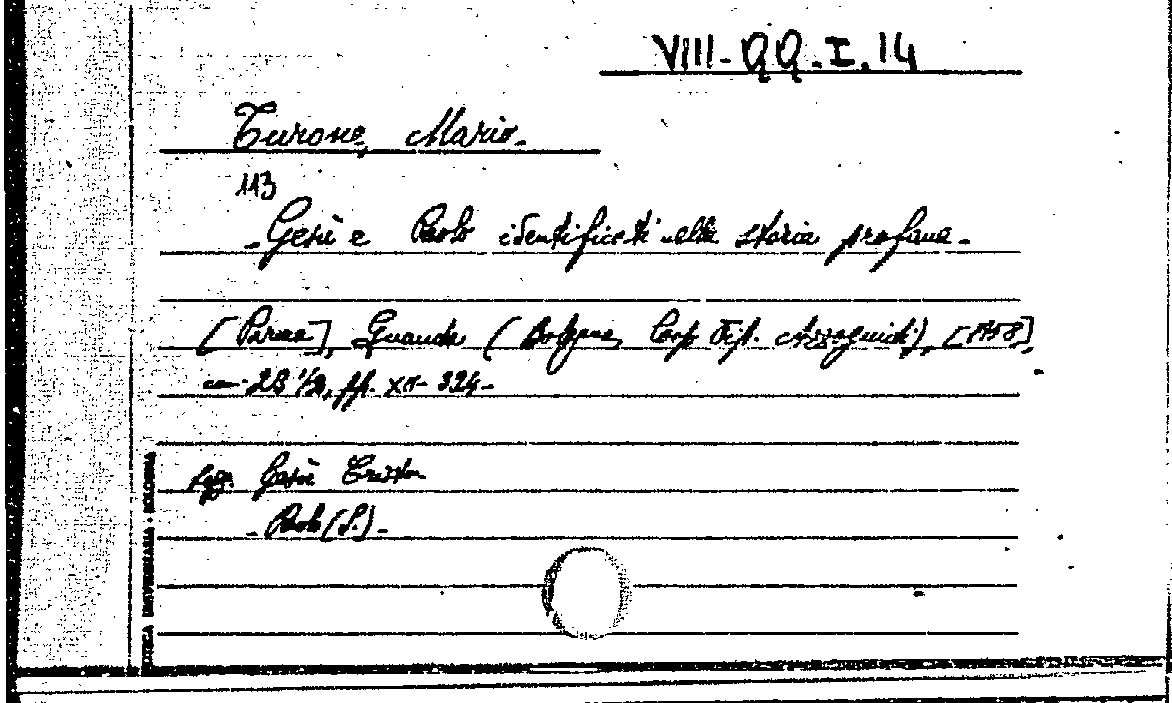 VIII-QQ.I.14
Turone, Mario.
113
- Gesù e Paolo identificati nella storia profana.
[Parma], Guanda (Bologna, Coop. Tip. Azzoguidi), [1958],
cm. 23 1/2, pp. XII-324-
Sogg. Gesù Cristo
- Paolo (S.) -
BIBLIOTECA UNIVERSITARIA - BOLOGNA